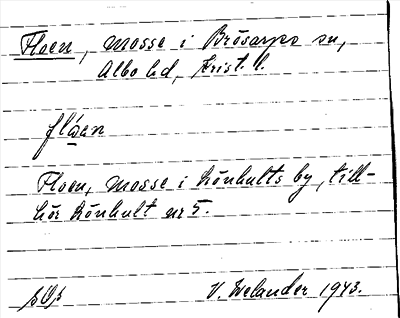 Floen, mosse i Brösarps sn,
Albo hd, Krist. l.
flóen
Floen, mosse i Lönhults by, till-
hör Lönhult nr 5.
V. Welander 1943.